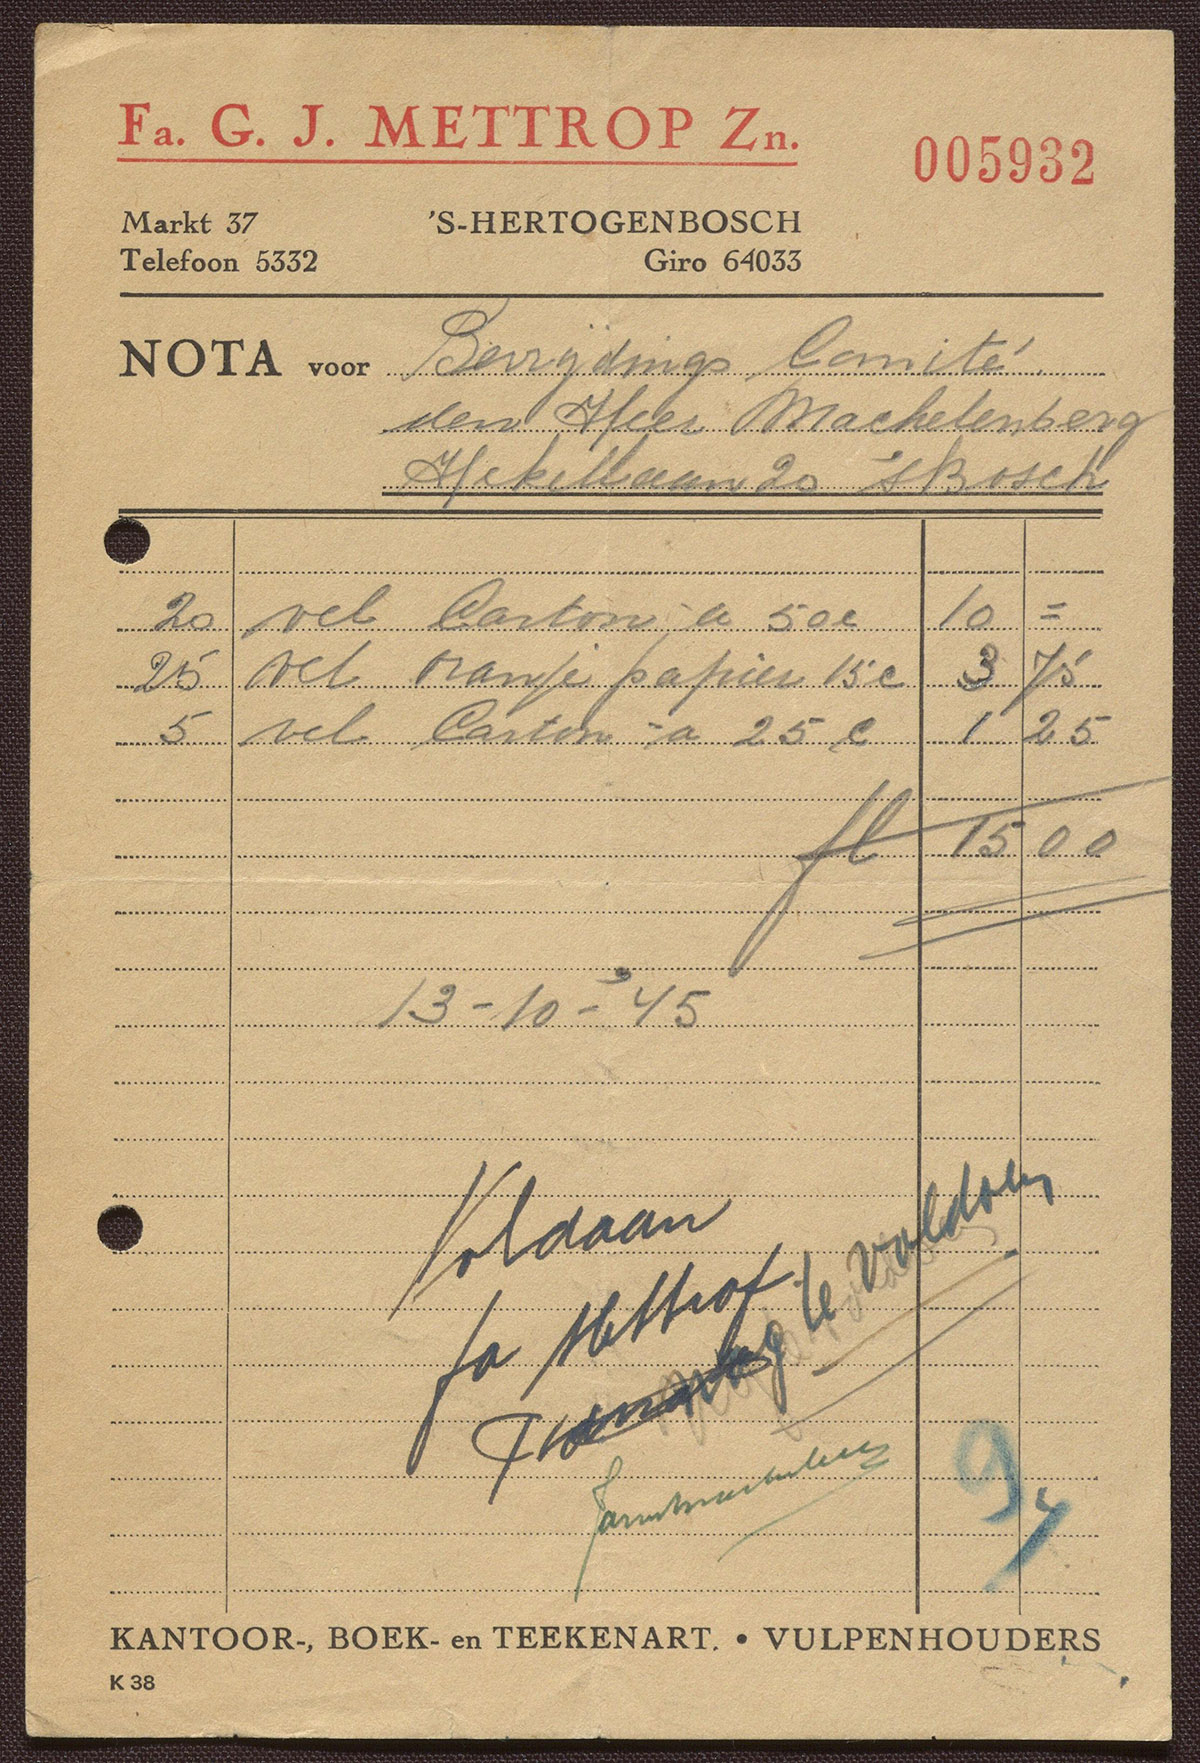 Fa. G. J. METTROP Zn.
005932
Markt 37 'S-HERTOGENBOSCH
Telefoon 5332 Giro 64033
NOTA voor Bevrijdings Comité.
den Heer Machelenberg
Hekellaan 20 's Bosch
20 vel Carton à 50c 10 =
25 vel oranje papier 15c 3 75
5 vel Carton à 25 c 1 25
fl 15 00
13-10-'45
Voldaan
fa Mettrop
te voldoen
KANTOOR-, BOEK- en TEEKENART. • VULPENHOUDERS
K 38